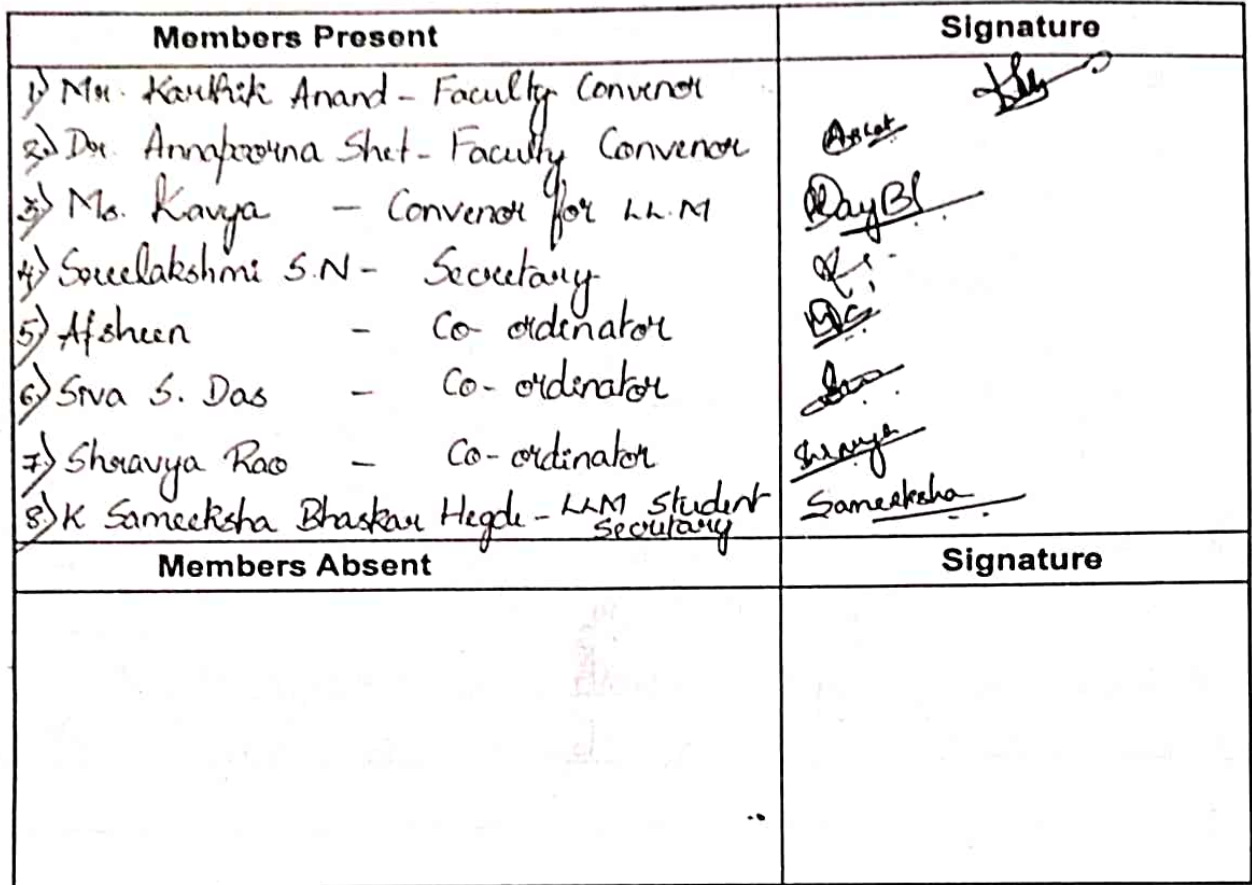 Members Present Signature
1) Mr. Karthik Anand - Faculty Convenor
2) Dr. Annapoorna Shet - Faculty Convenor
3) Ms. Kavya - Convenor for LL.M
4) Sreelakshmi S.N - Secretary
5) Afsheen - Co-ordinator
6) Siva S. Das - Co-ordinator
7) Shravya Rao - Co-ordinator Shravya
8) K Sameeksha Bhaskar Hegde - LLM Student Sameeksha
Secretary
Members Absent Signature